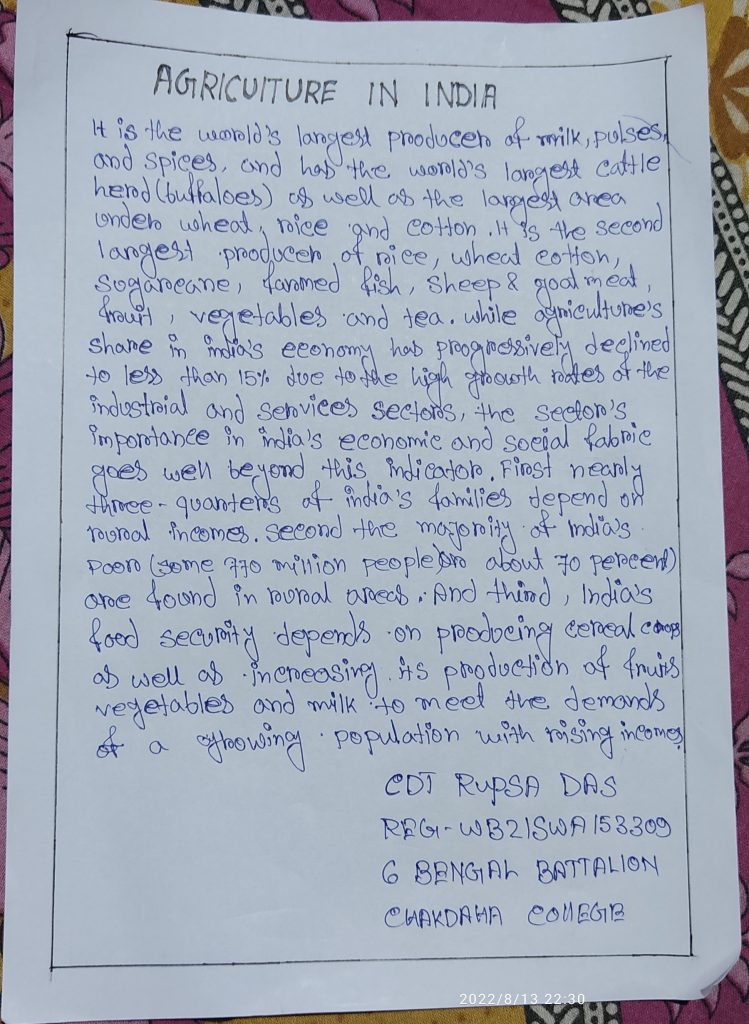 AGRICUITURE IN INDIA
It is the world's largest producer of milk, pulses,
and spices, and has the world's largest cattle
herd (buffaloes) as well as the largest area
under wheat, rice and cotton. It is the second
largest producer of rice, wheat cotton,
sugarcane, farmed fish, sheep & goat meat,
fruit, vegetables and tea. while agriculture's
share in india's economy has progressively declined
to less than 15% due to the high growth rates of the
industrial and services sectors, the sector's
importance in india's economic and social fabric
goes well beyond this indicator. First nearly
three-quarters of india's families depend on
rural incomes. second the majority of India's
poor (some 770 million people or about 70 percent)
are found in rural areas. And third, India's
food security depends on producing cereal crops
as well as increasing its production of fruits
vegetables and milk to meet the demands
of a growing population with rising incomes
CDT RUPSA DAS
REG-WB21SWA153309
6 BENGAL BATTALION
CHAKDAHA COllEGE
2022/8/13 22:30